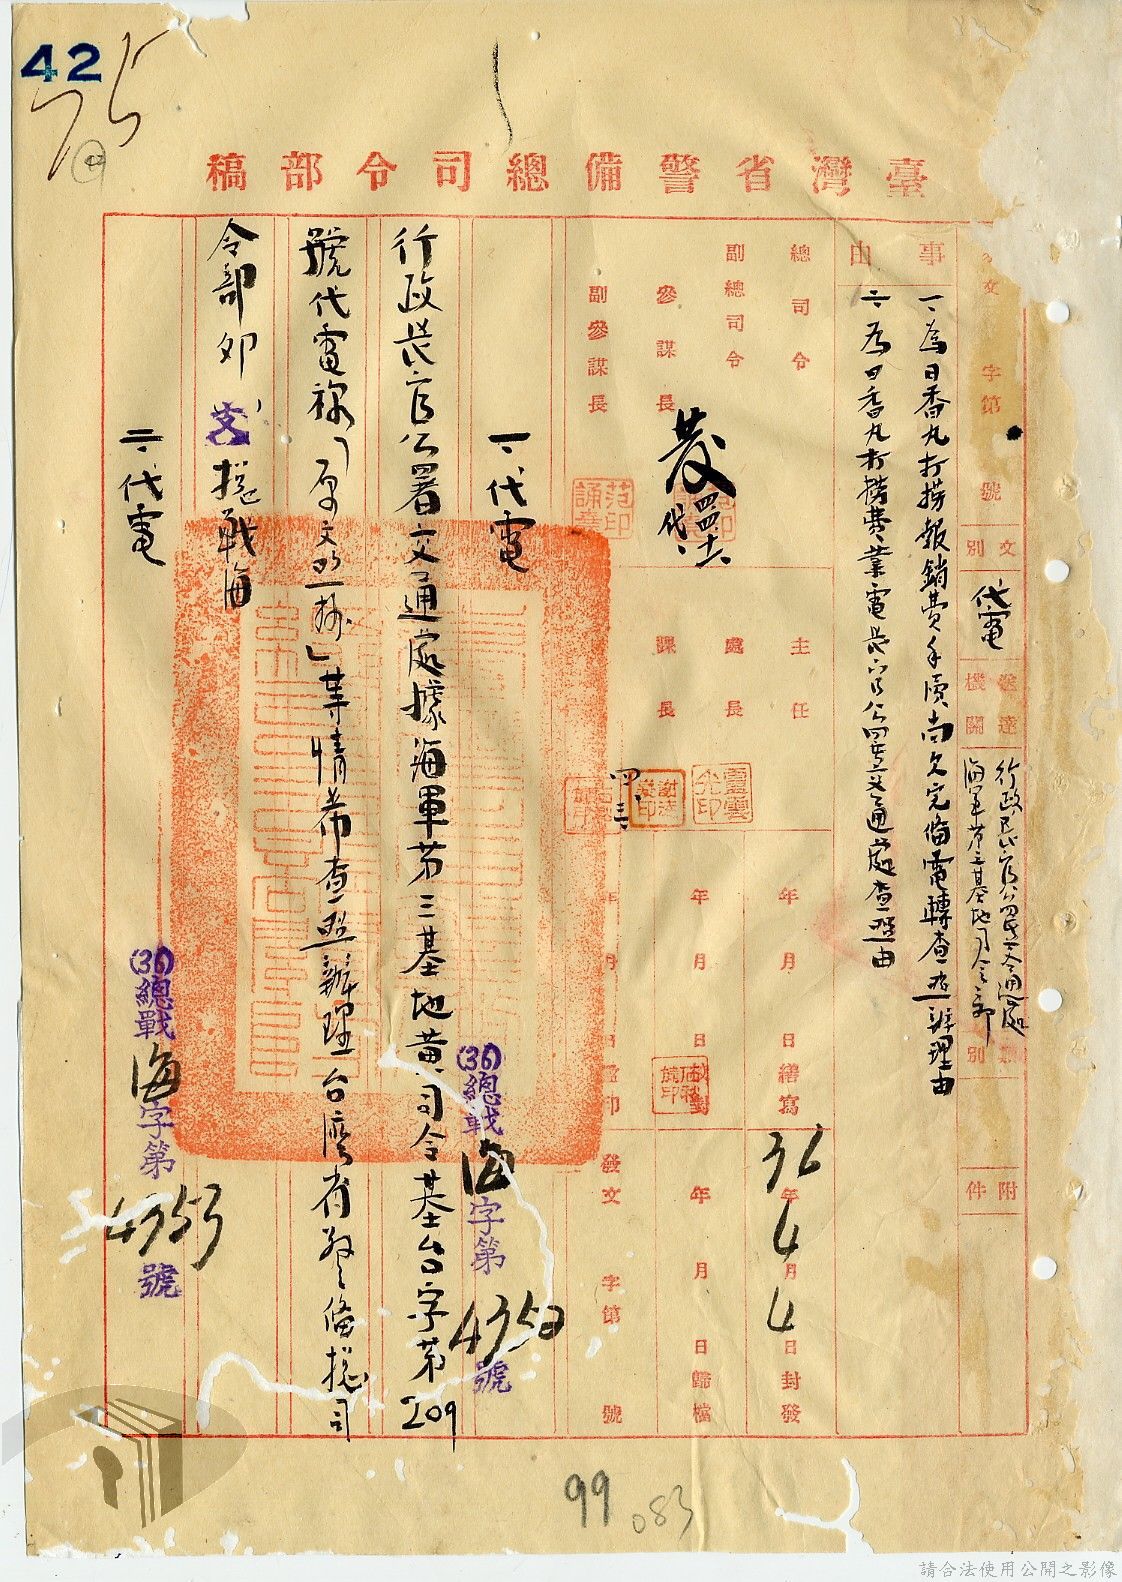 42
臺灣省警備總司令部稿
文 字第 號
文別 代電
送達機關 行政長官公署交通處
海軍第三基地司令部
別
附件
事由
一、為日香丸打撈報銷費手續尚欠完備電轉查照辦理由
二、為日香丸打撈費業電長官公署交通處查照由
總司令
副總司令
參謀長
副參謀長
發 四四
代
主任
處長
課長
四、三
年 月 日繕寫
年 月 日校對
年 月 日蓋印
36年4月4日封發
年 月 日歸檔
發文 字第 號
(36)總戰海字第4352號
一、代電
行政長官公署交通處據海軍第三基地黃司令基台字第209
號代電稱「原文照抄」等情希查照辦理台灣省警備總司
令部卯支總戰海
二、代電
(36)總戰海字第4353號
99
083
請合法使用公開之影像